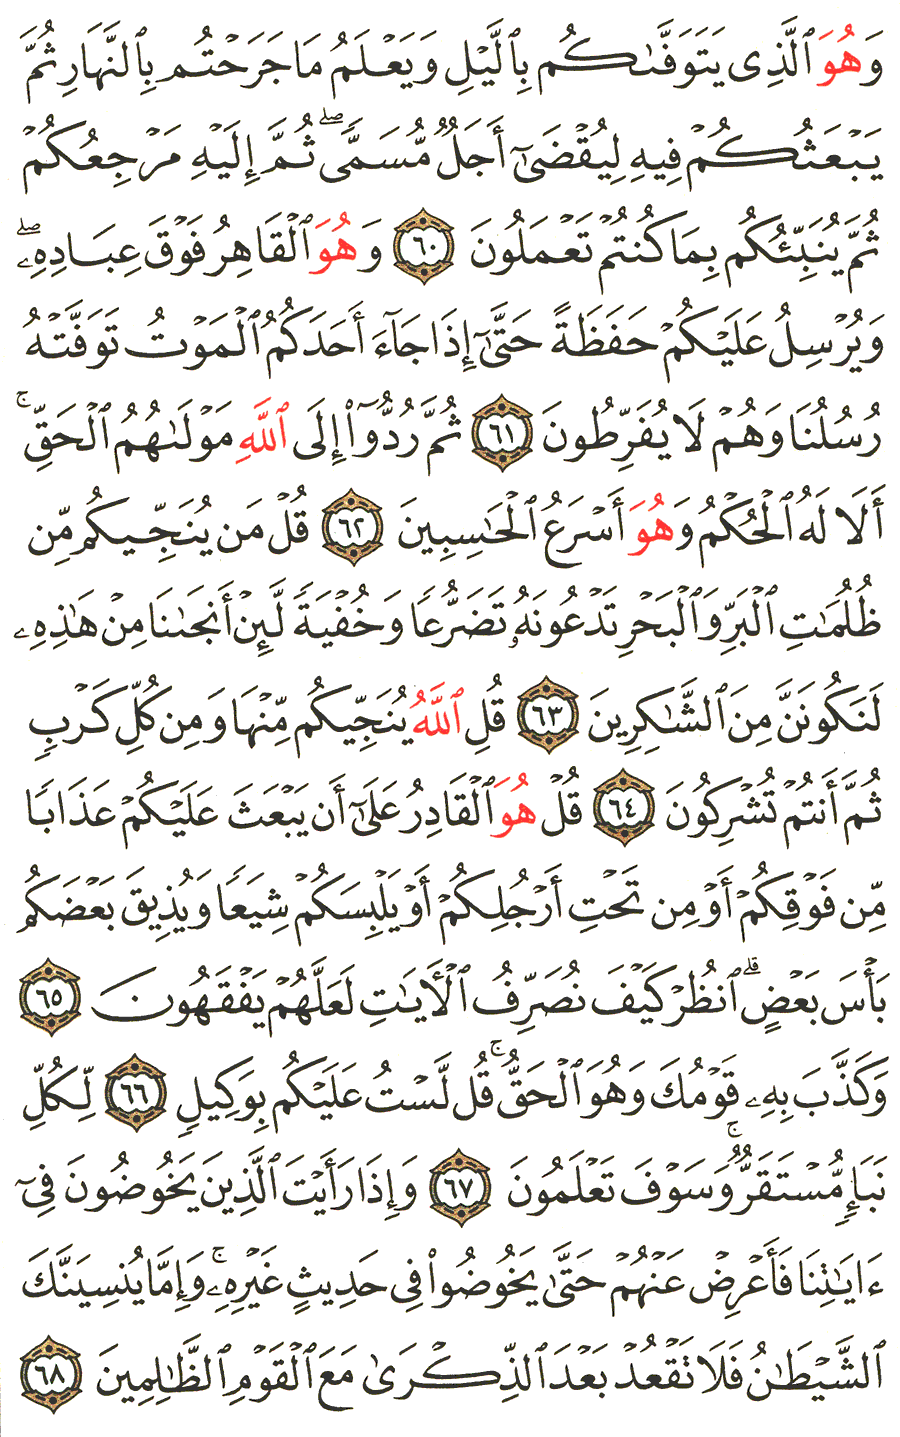 وَهُوَ ٱلَّذِى يَتَوَفَّىٰكُم بِٱلَّيْلِ وَيَعْلَمُ مَا جَرَحْتُم بِٱلنَّهَارِ ثُمَّ
يَبْعَثُكُمْ فِيهِ لِيُقْضَىٰٓ أَجَلٌ مُّسَمًّى ۖ ثُمَّ إِلَيْهِ مَرْجِعُكُمْ
ثُمَّ يُنَبِّئُكُم بِمَا كُنتُمْ تَعْمَلُونَ ٦٠ وَهُوَ ٱلْقَاهِرُ فَوْقَ عِبَادِهِۦ ۖ
وَيُرْسِلُ عَلَيْكُمْ حَفَظَةً حَتَّىٰٓ إِذَا جَآءَ أَحَدَكُمُ ٱلْمَوْتُ تَوَفَّتْهُ
رُسُلُنَا وَهُمْ لَا يُفَرِّطُونَ ٦١ ثُمَّ رُدُّوٓا۟ إِلَى ٱللَّهِ مَوْلَىٰهُمُ ٱلْحَقِّ ۚ
أَلَا لَهُ ٱلْحُكْمُ وَهُوَ أَسْرَعُ ٱلْحَٰسِبِينَ ٦٢ قُلْ مَن يُنَجِّيكُم مِّن
ظُلُمَٰتِ ٱلْبَرِّ وَٱلْبَحْرِ تَدْعُونَهُۥ تَضَرُّعًا وَخُفْيَةً لَّئِنْ أَنجَىٰنَا مِنْ هَٰذِهِۦ
لَنَكُونَنَّ مِنَ ٱلشَّٰكِرِينَ ٦٣ قُلِ ٱللَّهُ يُنَجِّيكُم مِّنْهَا وَمِن كُلِّ كَرْبٍ
ثُمَّ أَنتُمْ تُشْرِكُونَ ٦٤ قُلْ هُوَ ٱلْقَادِرُ عَلَىٰٓ أَن يَبْعَثَ عَلَيْكُمْ عَذَابًا
مِّن فَوْقِكُمْ أَوْ مِن تَحْتِ أَرْجُلِكُمْ أَوْ يَلْبِسَكُمْ شِيَعًا وَيُذِيقَ بَعْضَكُم
بَأْسَ بَعْضٍ ۗ ٱنظُرْ كَيْفَ نُصَرِّفُ ٱلْـَٔايَٰتِ لَعَلَّهُمْ يَفْقَهُونَ ٦٥
وَكَذَّبَ بِهِۦ قَوْمُكَ وَهُوَ ٱلْحَقُّ ۚ قُل لَّسْتُ عَلَيْكُم بِوَكِيلٍ ٦٦ لِّكُلِّ
نَبَإٍ مُّسْتَقَرٌّ ۚ وَسَوْفَ تَعْلَمُونَ ٦٧ وَإِذَا رَأَيْتَ ٱلَّذِينَ يَخُوضُونَ فِىٓ
ءَايَٰتِنَا فَأَعْرِضْ عَنْهُمْ حَتَّىٰ يَخُوضُوا۟ فِى حَدِيثٍ غَيْرِهِۦ ۚ وَإِمَّا يُنسِيَنَّكَ
ٱلشَّيْطَٰنُ فَلَا تَقْعُدْ بَعْدَ ٱلذِّكْرَىٰ مَعَ ٱلْقَوْمِ ٱلظَّٰلِمِينَ ٦٨